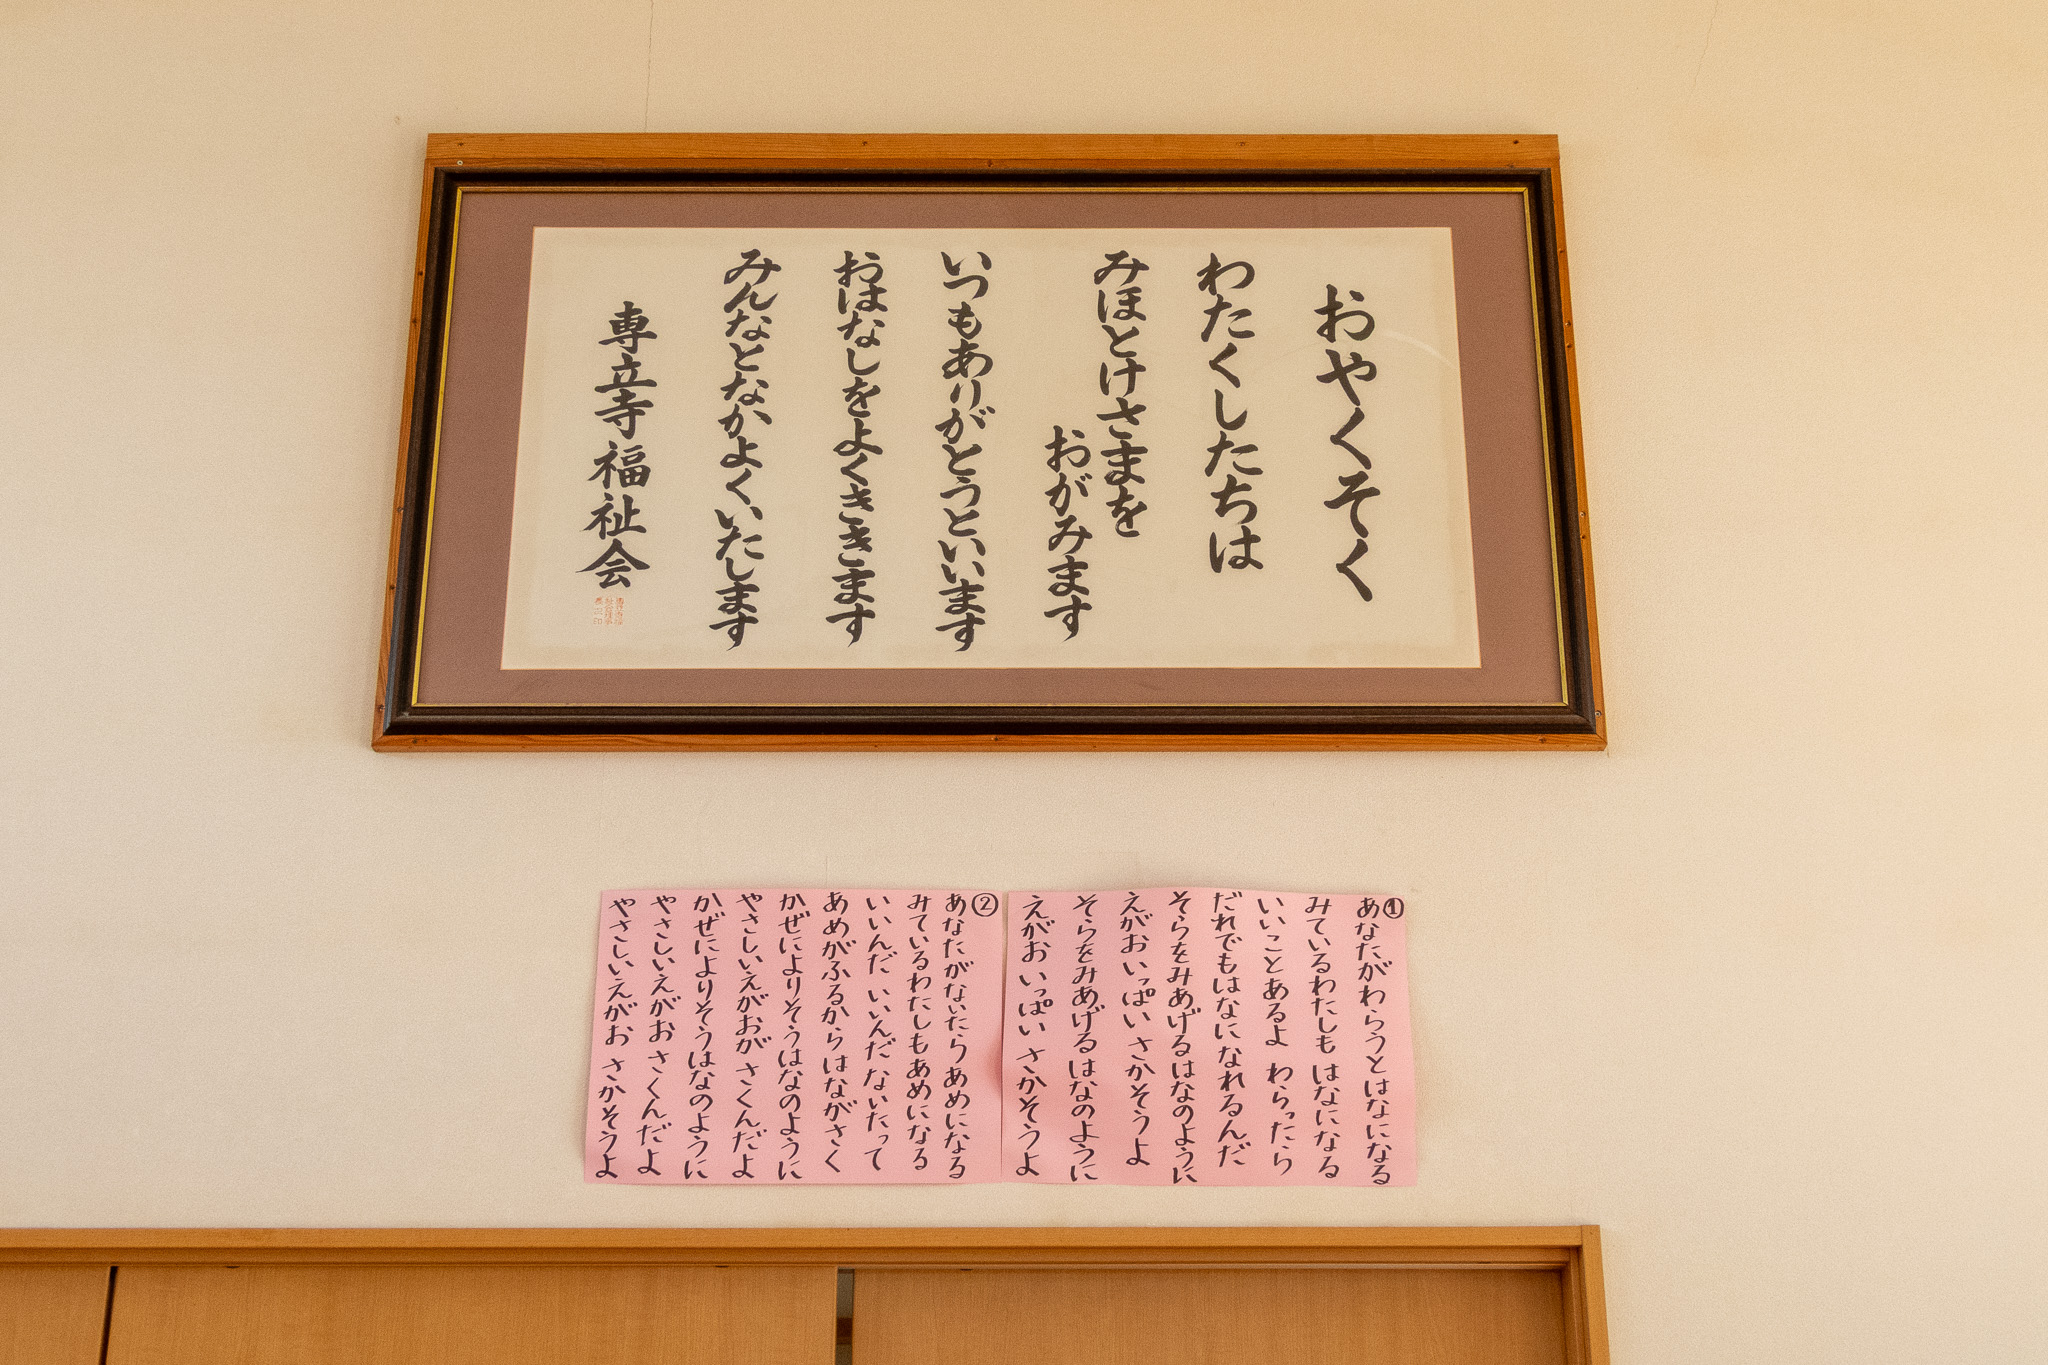 おやくそく
わたくしたちは
みほとけさまを
おがみます
いつもありがとうといいます
おはなしをよくききます
みんなとなかよくいたします
専立寺福祉会
①
あなたがわらうとはなになる
みているわたしも はなになる
いいことあるよ わらったら
だれでもはなになれるんだ
そらをみあげるはなのように
えがおいっぱい さかそうよ
そらをみあげるはなのように
えがおいっぱい さかそうよ
②
あなたがないたらあめになる
みているわたしもあめになる
いいんだ いいんだ ないたって
あめがふるから はながさく
かぜによりそうはなのように
やさしいえがおが さくんだよ
かぜによりそうはなのように
やさしいえがお さくんだよ
やさしいえがお さかそうよ